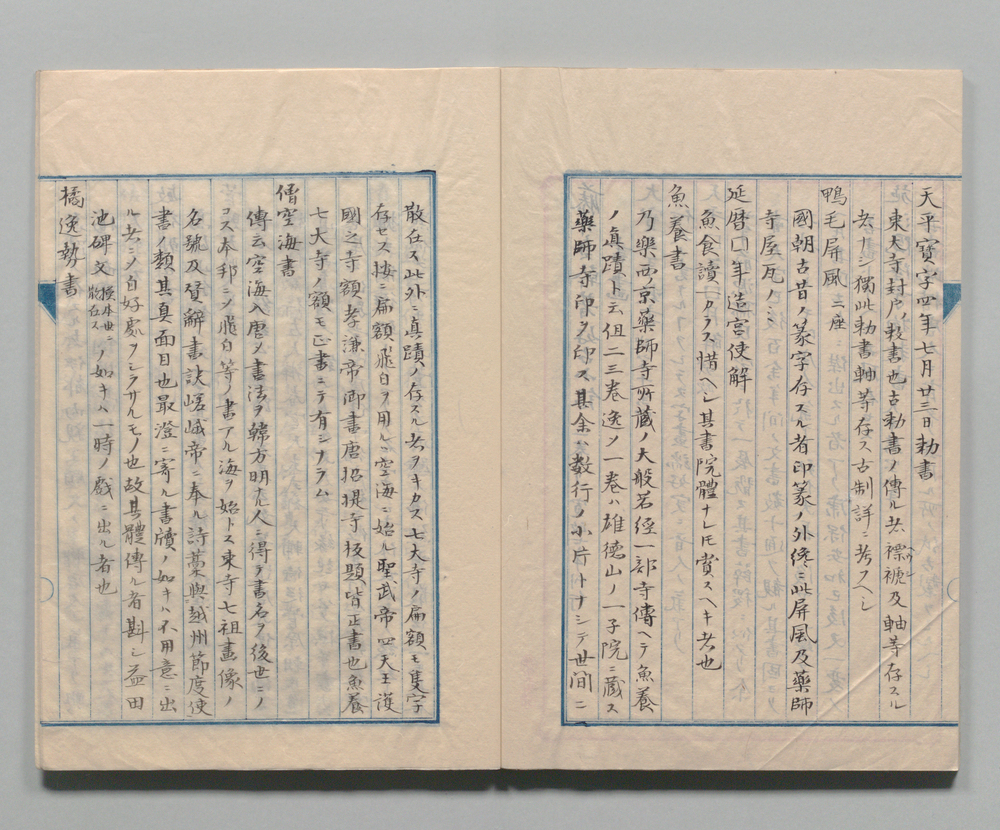 天平寶字四年七月廿三日勅書
東大寺封戸ノ敕書也古勅書ノ傳ル者褾褫及軸等存スル
者ナシ獨此勅書軸等存ス古制詳ニ考フヘシ
鴨毛屏風 二座
國朝古昔ノ篆字存スル者印篆ノ外終ニ此屏風及藥師
寺屋瓦ノミ
延暦□年造宮使解
魚食讀ヘカラス惜ヘシ其書院體ナレ𪜈賞スヘキ者也
魚養書
乃樂西ノ京藥師寺所藏ノ大般若經一部寺傳ヘテ魚養
ノ眞蹟ト云但二三卷逸メ一卷ハ雄徳山ノ一子院ニ藏ス
藥師寺印ヲ印ス其余ハ数行ノ小片トナシテ世間ニ
散在ス此外ニ真蹟ノ存スル者ヲキカス七大寺ノ扁額モ隻字
存セス按ニ扁額飛白ヲ用ルハ空海ニ始ル聖武帝四天王護
國之寺額孝謙帝御書唐招提寺扳題皆正書也魚養
七大寺ノ額モ正書ニテ有シナラム
僧空海書
傳云空海入唐メ書法ヲ韓方明ナル人ニ得テ書名ヲ後世ニノ
コス本邦ニメ飛白等ノ書アル海ヲ始トス東寺七祖畫像ノ
名號及贊辭書訣嵯峨帝ニ奉ル詩藁與越州節度使
書ノ類其真面目也最澄ニ寄ル書牘ノ如キハ不用意ニ出
ル者ニメ自好處ヲシラサルモノ也故其體傳ル者斟シ益田
池碑文搨本世ニ散在スノ如キハ一時ノ戲ニ出ル者也
橘逸勢書